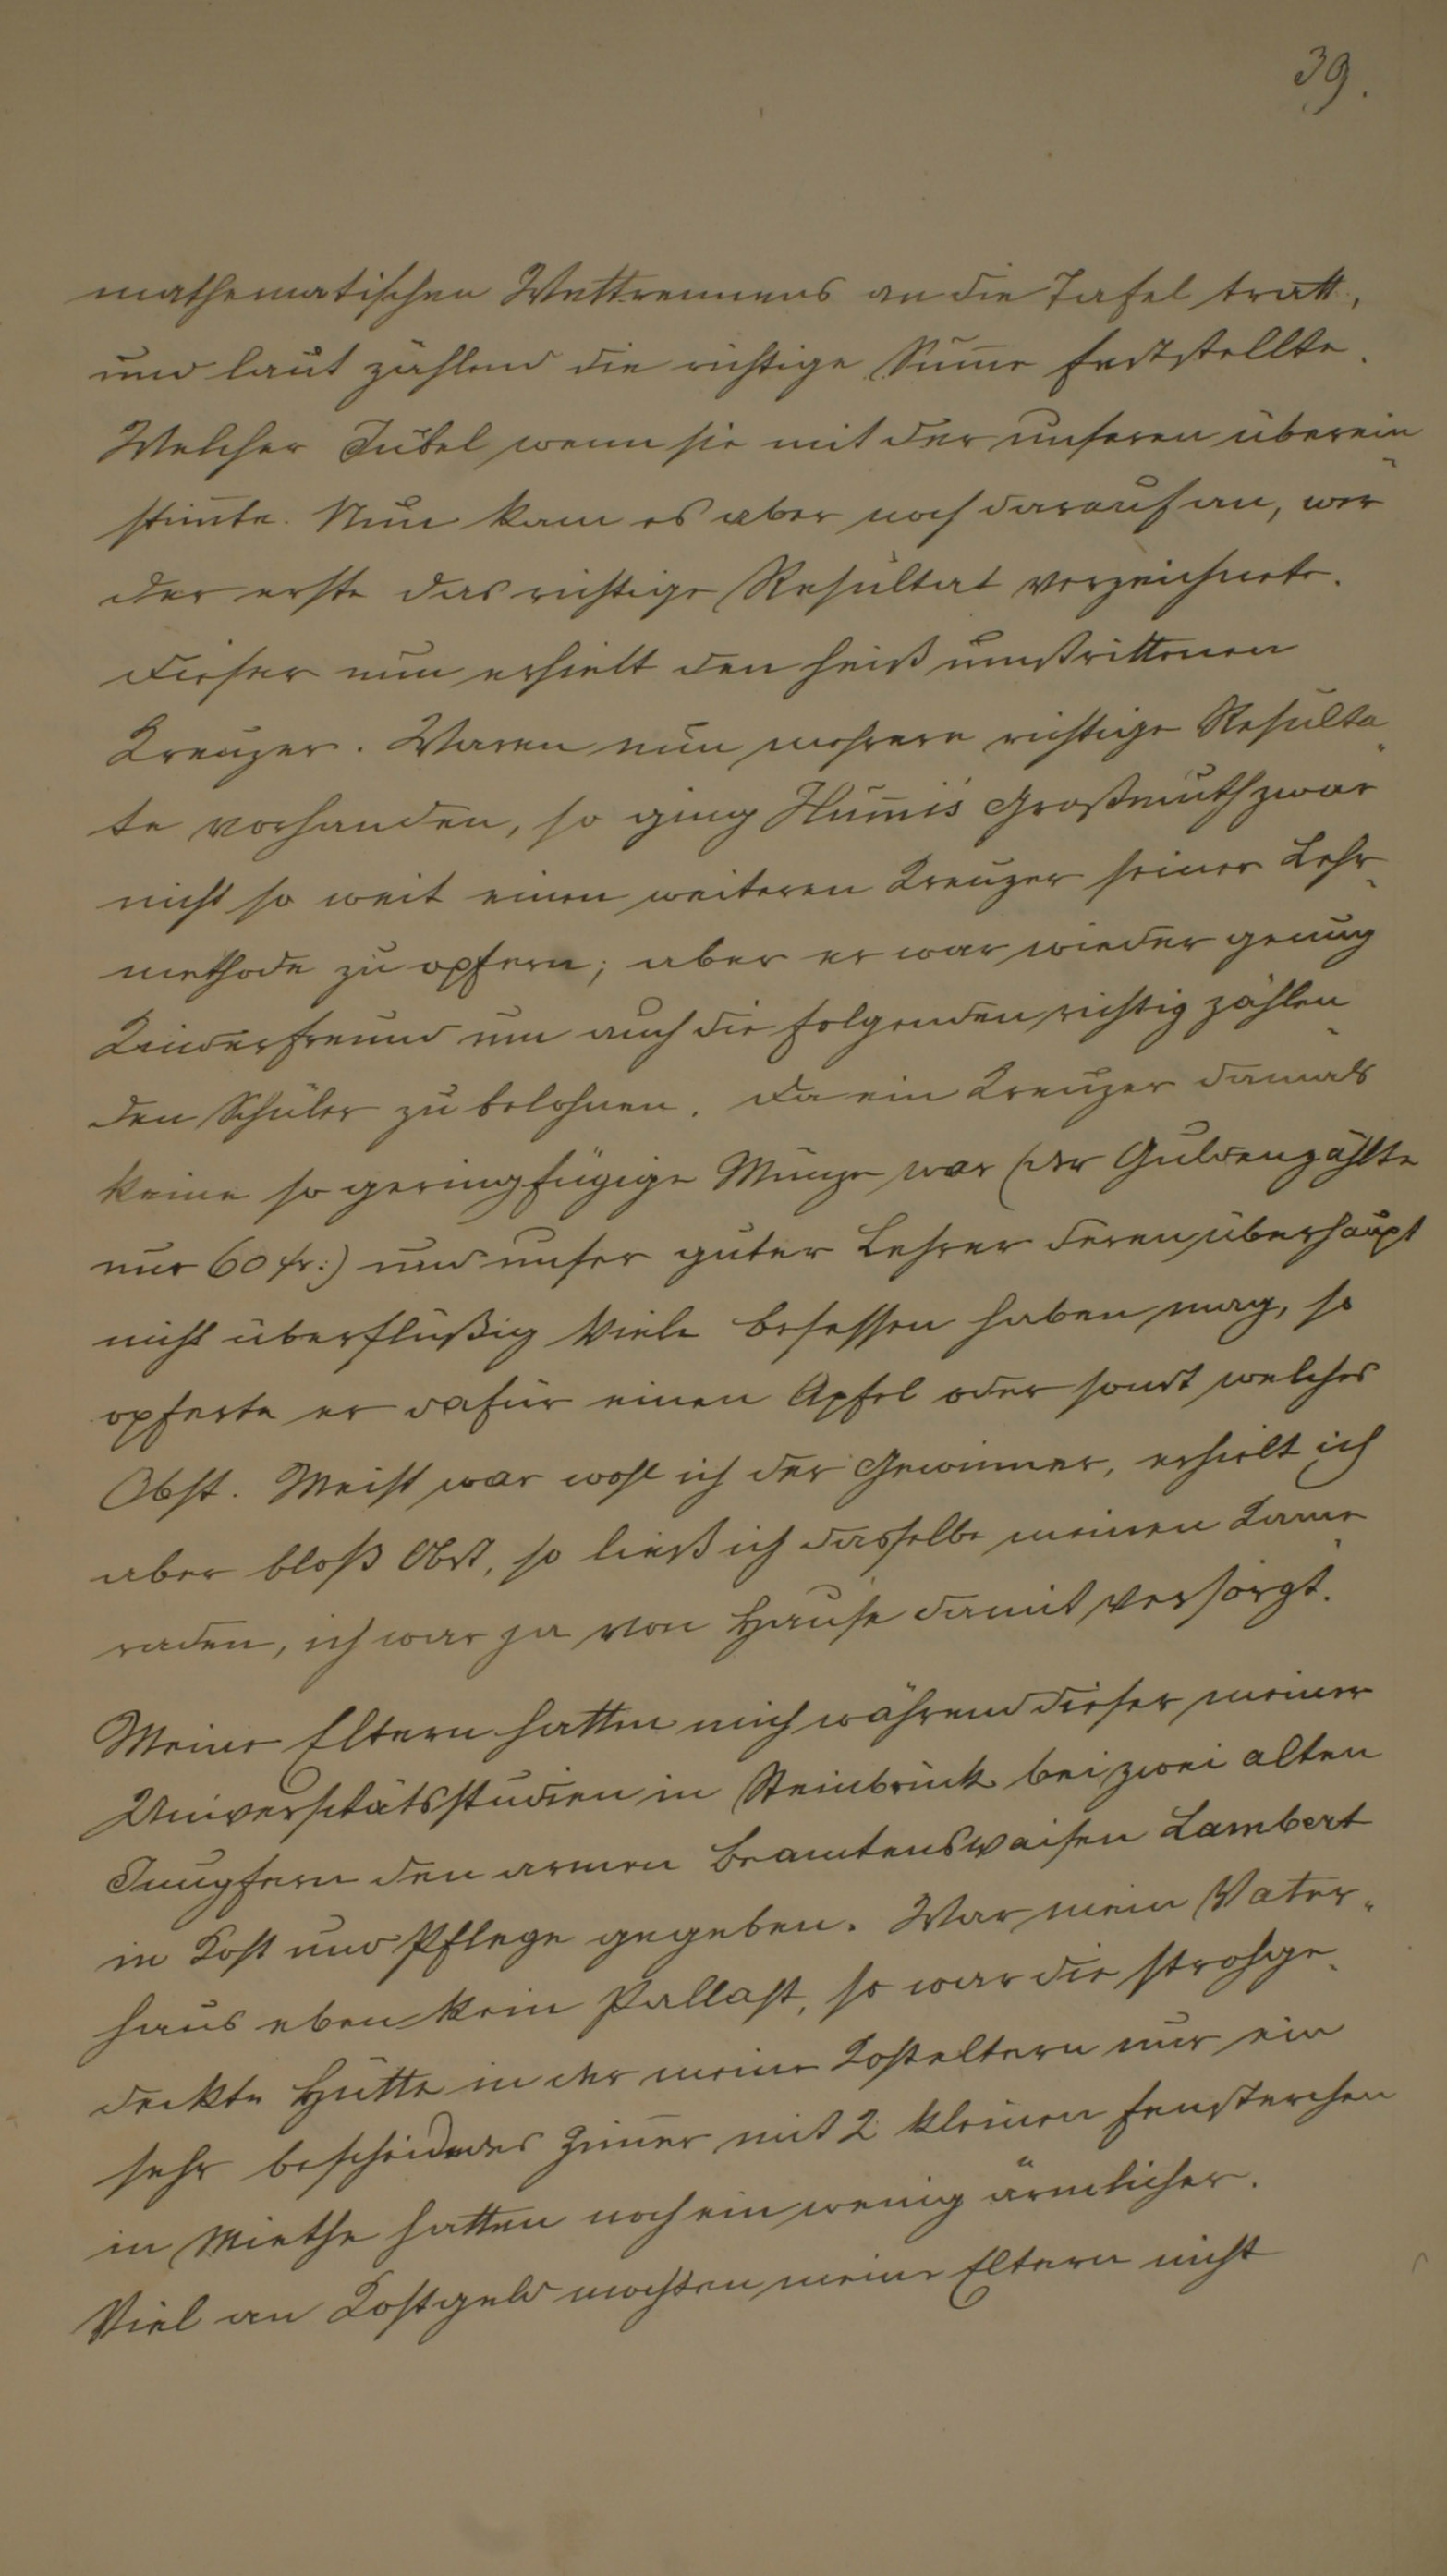 39.
mathematischen Wettrennens an die Tafel tratt,
und laut zählend die richtige Sum̅e feststellte.
Welcher Jubel wenn sie mit der unseren überein-
stim̅te. Nun kam es aber noch darauf an, wer
der erste das richtige Resultat verzeichnete.
Dieser nun erhielt den heiß umstrittenen
Kreuzer. Waren nun mehrere richtige Resulta-
te vorhanden, so ging Hum̅is Großmuth zwar
nicht so weit einen weiteren Kreuzer seiner Lehr-
methode zu opfern; aber er war wieder genug
Kinderfreund um auch die folgenden richtig zählen-
den Schüler zu belohnen. Da ein Kreuzer damals
keine so geringfügige Münze war (der Gulden zählte
nur 60 kr:) und unser guter Lehrer deren überhaupt
nicht überflüßig Viele besessen haben mag, so
opferte er dafür einen Apfel oder sonst welches
Obst. Meist war wohl ich der Gewinner, erhielt ich
aber bloß Obst, so ließ ich dasselbe meinen Kame-
raden, ich war ja von Hause damit versorgt.
Meine Eltern hatten mich während dieser meiner
Universitätsstudien in Steinbrück bei zwei alten
Jungfern den armen Beamtenswaisen Lambert
in Kost und Pflege gegeben. War mein Vater-
haus eben kein Pallast, so war die strohge-
deckte Hütte in der meine Kosteltern nur ein
sehr bescheidenes Zim̅er mit 2 kleinen Fensterchen
in Miethe hatten noch ein wenig ärmlicher.
Viel an Kostgeld mochten meine Eltern nicht